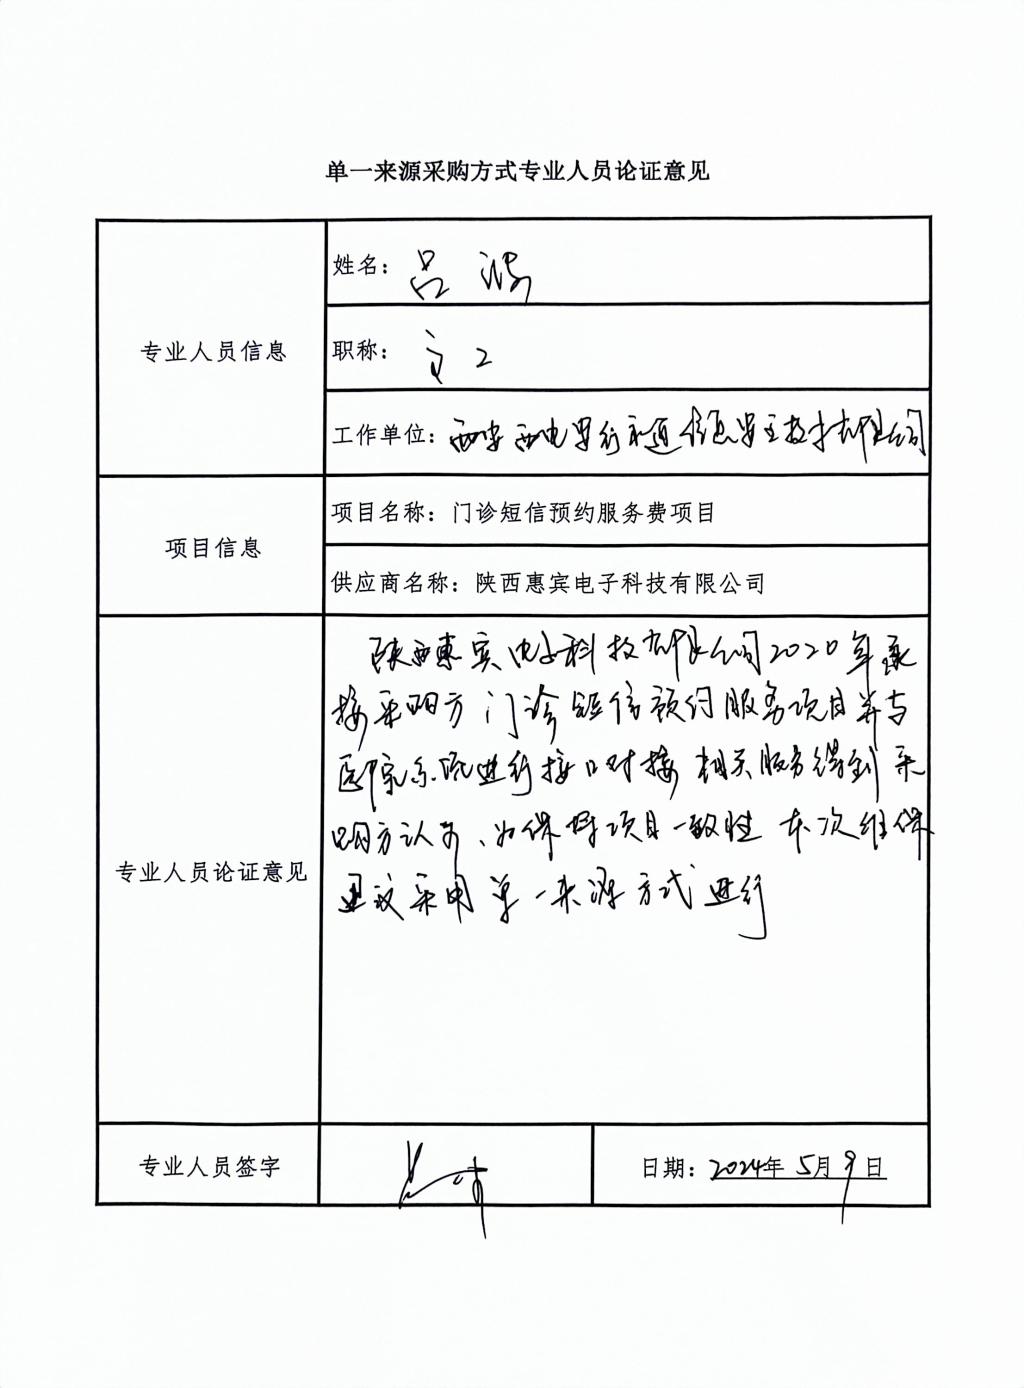 单一来源采购方式专业人员论证意见
专业人员信息
姓名：吕波
职称：高工
工作单位：西安西电捷通信息技术有限公司
项目信息
项目名称：门诊短信预约服务费项目
供应商名称：陕西惠宾电子科技有限公司
专业人员论证意见
陕西惠宾电子科技有限公司2020年承
接采购方门诊短信预约服务项目并与
医院系统进行接口对接 相关服务得到采
购方认可、为保持项目一致性 本次维保
建议采用单一来源方式进行
专业人员签字
日期：2024年5月9日